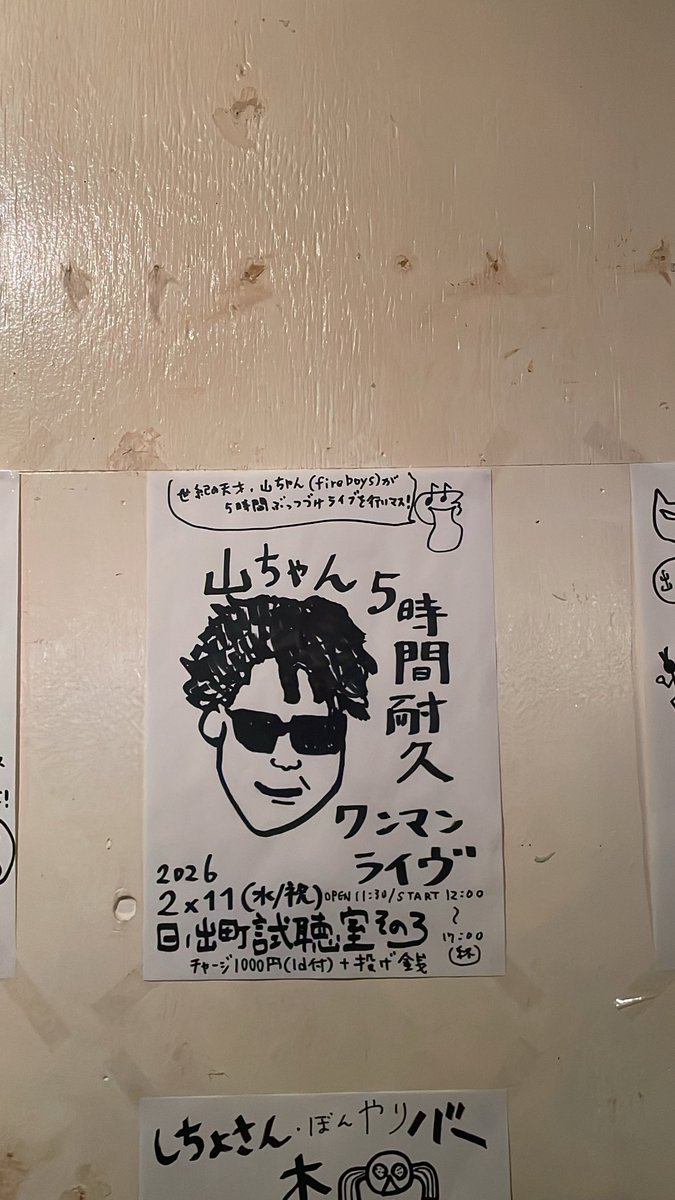 世紀の天才、山ちゃん(fireboys)が
5時間ぶっつづけライブを行いマス!
山ちゃん
5時間耐久
ワンマン
ライヴ
2026
2×11(水/祝)OPEN 11:30/START 12:00
〜
17:00
(終)
日ノ出町試聴室その3
チャージ1000円(1d付)+投げ銭
しちょさん・ぼんやりバー
木